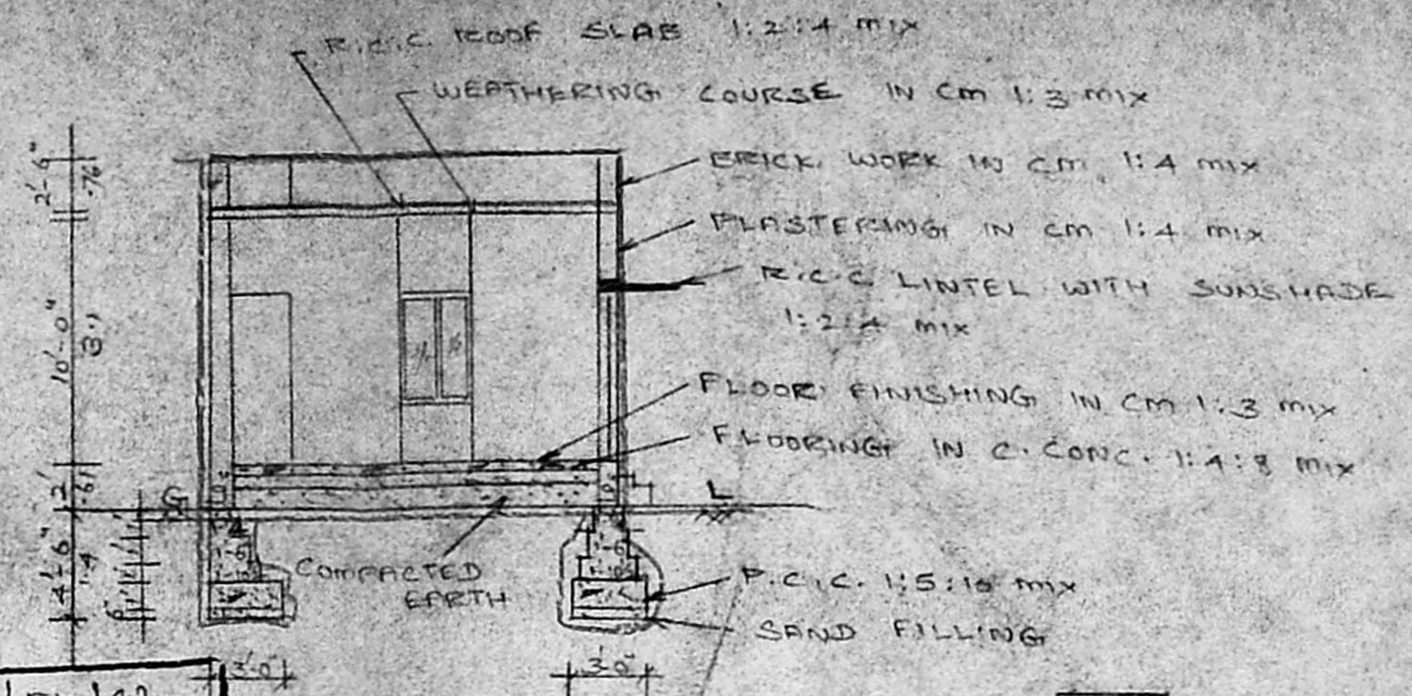 R.C.C. ROOF SLAB 1:2:4 mix
WEATHERING COURSE IN cm 1:3 mix
BRICK WORK IN cm 1:4 mix
PLASTERING IN cm 1:4 mix
R.C.C. LINTEL WITH SUNSHADE
1:2:4 mix
FLOOR FINISHING IN cm 1:3 mix
FLOORING IN C. CONC. 1:4:8 mix
2'-6"
.76
10'-0"
2'
.61
G
L
4'-6"
1.4
COMPACTED
EARTH
P.C.C. 1:5:10 mix
SAND FILLING
3'-0"
3'-0"